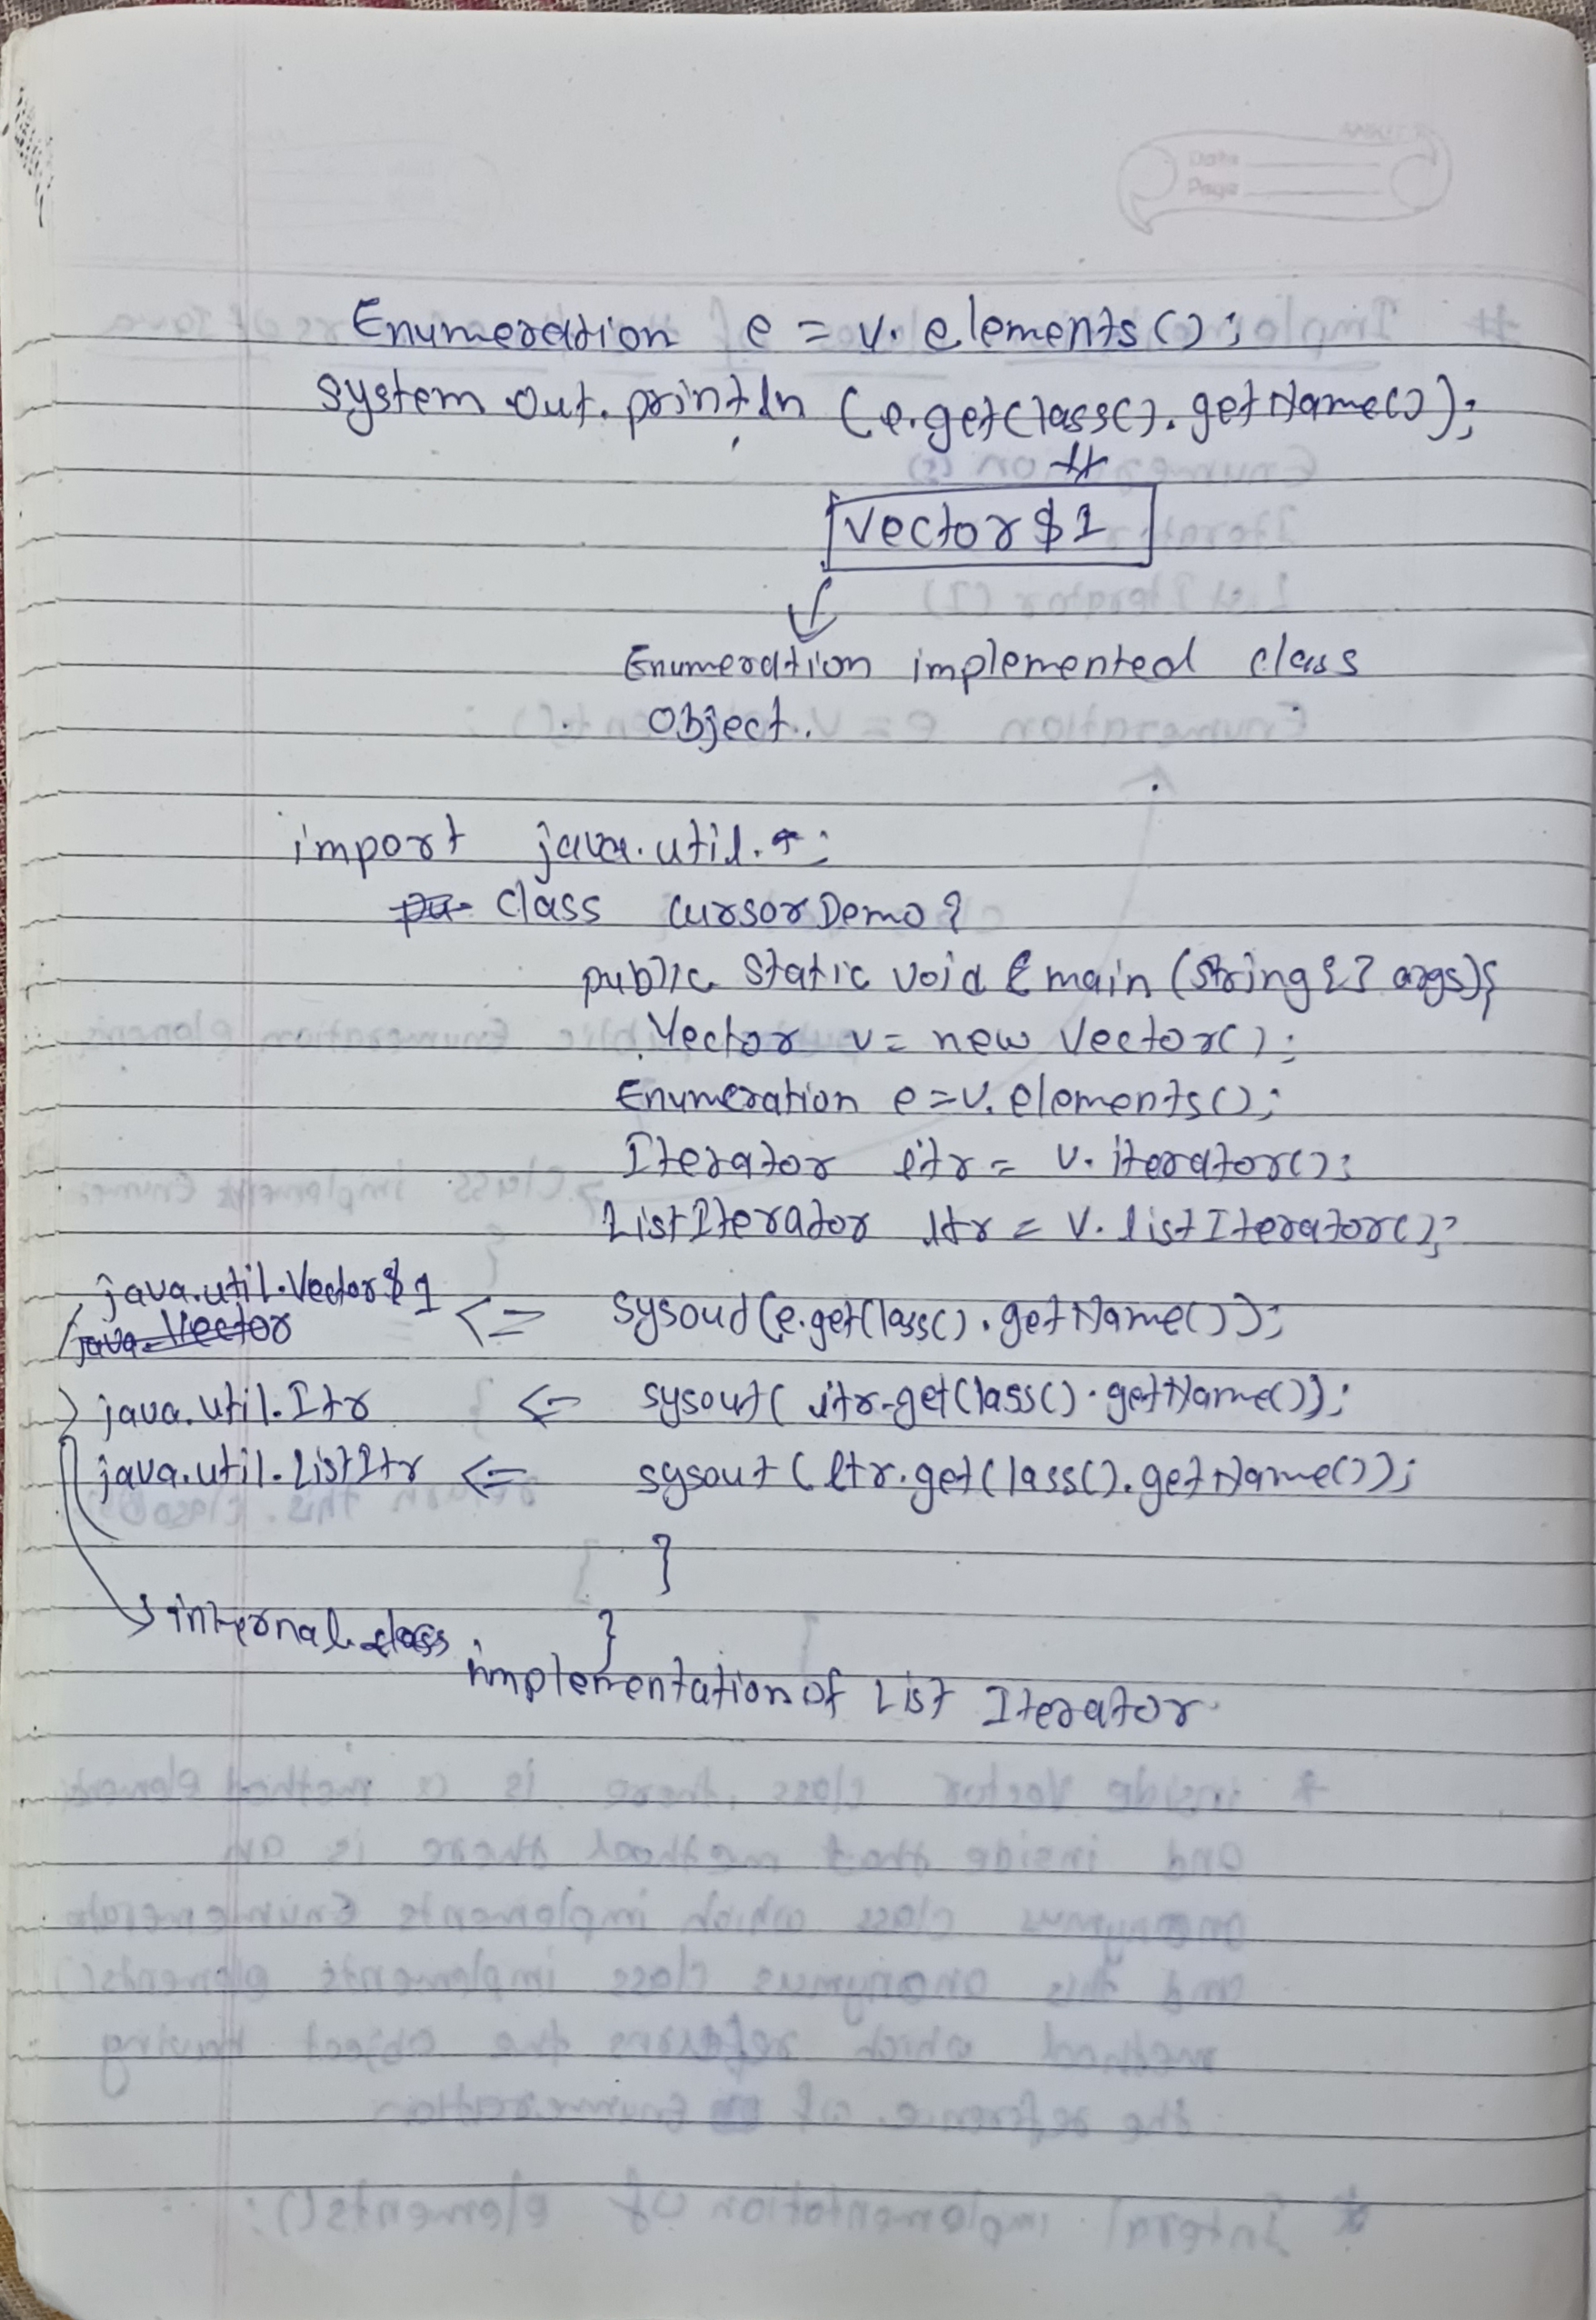 Enumeration e = v.elements();
System.out.println (e.getClass().getName());
Vector$1
Enumeration implemented class
Object.
import java.util.*;
class cursorDemo {
public static void main (String[] args){
Vector v = new Vector();
Enumeration e = v.elements();
Iterator itr = v.iterator();
ListIterator ltr = v.listIterator();
java.util.Vector$1 <= sysout(e.getClass().getName());
java.Vector
java.util.Itr <= sysout( itr.getClass().getName());
java.util.ListItr <= sysout (ltr.getClass().getName());
}
internal class }
implementation of List Iterator